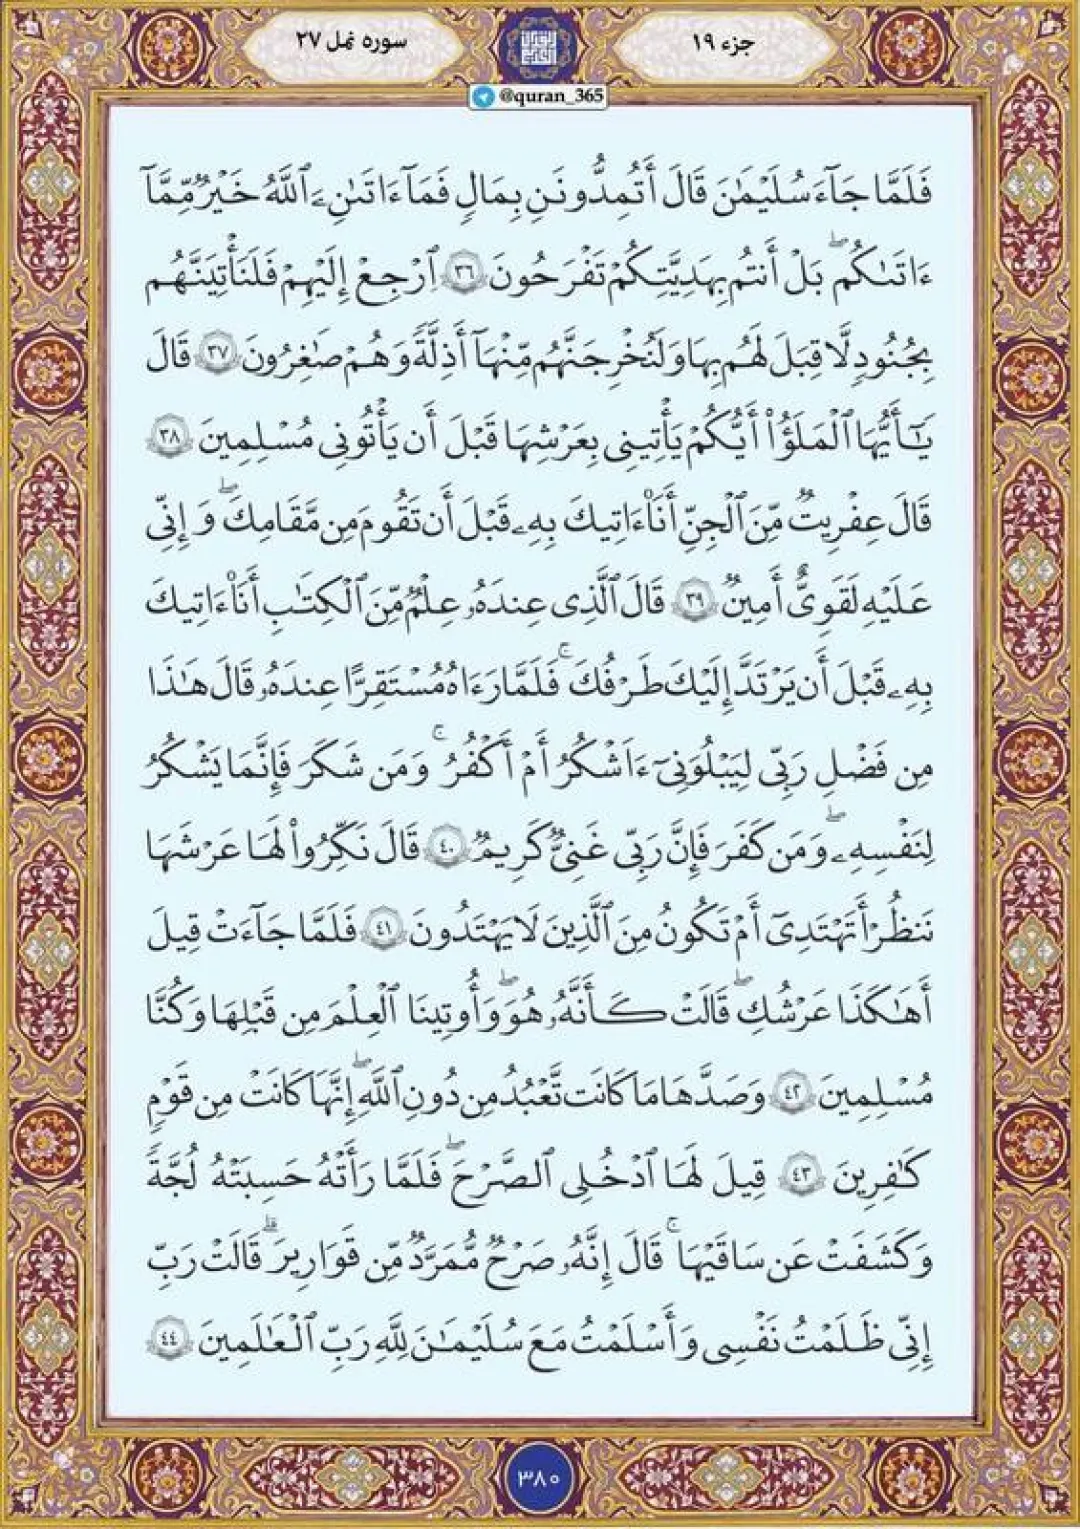 جزء ۱۹
سوره نمل ۲۷
@quran_365
فَلَمَّا جَآءَ سُلَيْمَٰنَ قَالَ أَتُمِدُّونَنِ بِمَالٍ فَمَآ ءَاتَىٰنِۦَ ٱللَّهُ خَيْرٌ مِّمَّآ
ءَاتَىٰكُم ۖ بَلْ أَنتُم بِهَدِيَّتِكُمْ تَفْرَحُونَ ٣٦ ٱرْجِعْ إِلَيْهِمْ فَلَنَأْتِيَنَّهُم
بِجُنُودٍ لَّا قِبَلَ لَهُم بِهَا وَلَنُخْرِجَنَّهُم مِّنْهَآ أَذِلَّةً وَهُمْ صَٰغِرُونَ ٣٧ قَالَ
يَٰٓأَيُّهَا ٱلْمَلَؤُا۟ أَيُّكُمْ يَأْتِينِى بِعَرْشِهَا قَبْلَ أَن يَأْتُونِى مُسْلِمِينَ ٣٨
قَالَ عِفْرِيتٌ مِّنَ ٱلْجِنِّ أَنَا۠ ءَاتِيكَ بِهِۦ قَبْلَ أَن تَقُومَ مِن مَّقَامِكَ ۖ وَإِنِّى
عَلَيْهِ لَقَوِىٌّ أَمِينٌ ٣٩ قَالَ ٱلَّذِى عِندَهُۥ عِلْمٌ مِّنَ ٱلْكِتَٰبِ أَنَا۠ ءَاتِيكَ
بِهِۦ قَبْلَ أَن يَرْتَدَّ إِلَيْكَ طَرْفُكَ ۚ فَلَمَّا رَءَاهُ مُسْتَقِرًّا عِندَهُۥ قَالَ هَٰذَا
مِن فَضْلِ رَبِّى لِيَبْلُوَنِىٓ ءَأَشْكُرُ أَمْ أَكْفُرُ ۚ وَمَن شَكَرَ فَإِنَّمَا يَشْكُرُ
لِنَفْسِهِۦ ۖ وَمَن كَفَرَ فَإِنَّ رَبِّى غَنِىٌّ كَرِيمٌ ٤٠ قَالَ نَكِّرُوا۟ لَهَا عَرْشَهَا
نَنظُرْ أَتَهْتَدِىٓ أَمْ تَكُونُ مِنَ ٱلَّذِينَ لَا يَهْتَدُونَ ٤١ فَلَمَّا جَآءَتْ قِيلَ
أَهَٰكَذَا عَرْشُكِ ۖ قَالَتْ كَأَنَّهُۥ هُوَ ۖ وَأُوتِينَا ٱلْعِلْمَ مِن قَبْلِهَا وَكُنَّا
مُسْلِمِينَ ٤٢ وَصَدَّهَا مَا كَانَت تَّعْبُدُ مِن دُونِ ٱللَّهِ ۖ إِنَّهَا كَانَتْ مِن قَوْمٍ
كَٰفِرِينَ ٤٣ قِيلَ لَهَا ٱدْخُلِى ٱلصَّرْحَ ۖ فَلَمَّا رَأَتْهُ حَسِبَتْهُ لُجَّةً
وَكَشَفَتْ عَن سَاقَيْهَا ۚ قَالَ إِنَّهُۥ صَرْحٌ مُّمَرَّدٌ مِّن قَوَارِيرَ ۗ قَالَتْ رَبِّ
إِنِّى ظَلَمْتُ نَفْسِى وَأَسْلَمْتُ مَعَ سُلَيْمَٰنَ لِلَّهِ رَبِّ ٱلْعَٰلَمِينَ ٤٤
۳۸۰